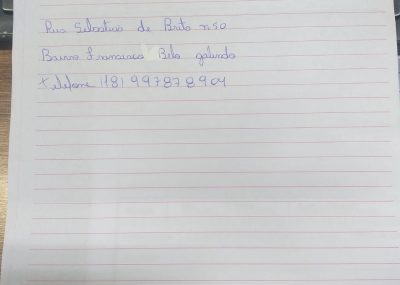 Rua Sebastião de Brito n50
Bairro Francisco Belo galindo
telefone (18) 997878904